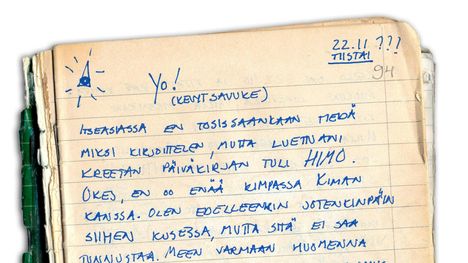 22.11 ???
TIISTAI
94
Yo!
(KEVYTSAVUKE)
ITSEASIASSA EN TOSISSAANKAAN TIEDÄ
MIKSI KIRJOITTELEN, MUTTA LUETTUANI
KREETAN PÄIVÄKIRJAN TULI HIMO.
OKEJ, EN OO ENÄÄ KIMPASSA KIMAN
KANSSA. OLEN EDELLEENKIN JOTENKINPÄIN
SIIHEN KUSESSA, MUTTA SITÄ EI SAA
TUNNUSTAA. MEEN VARMAAN HUOMENNA